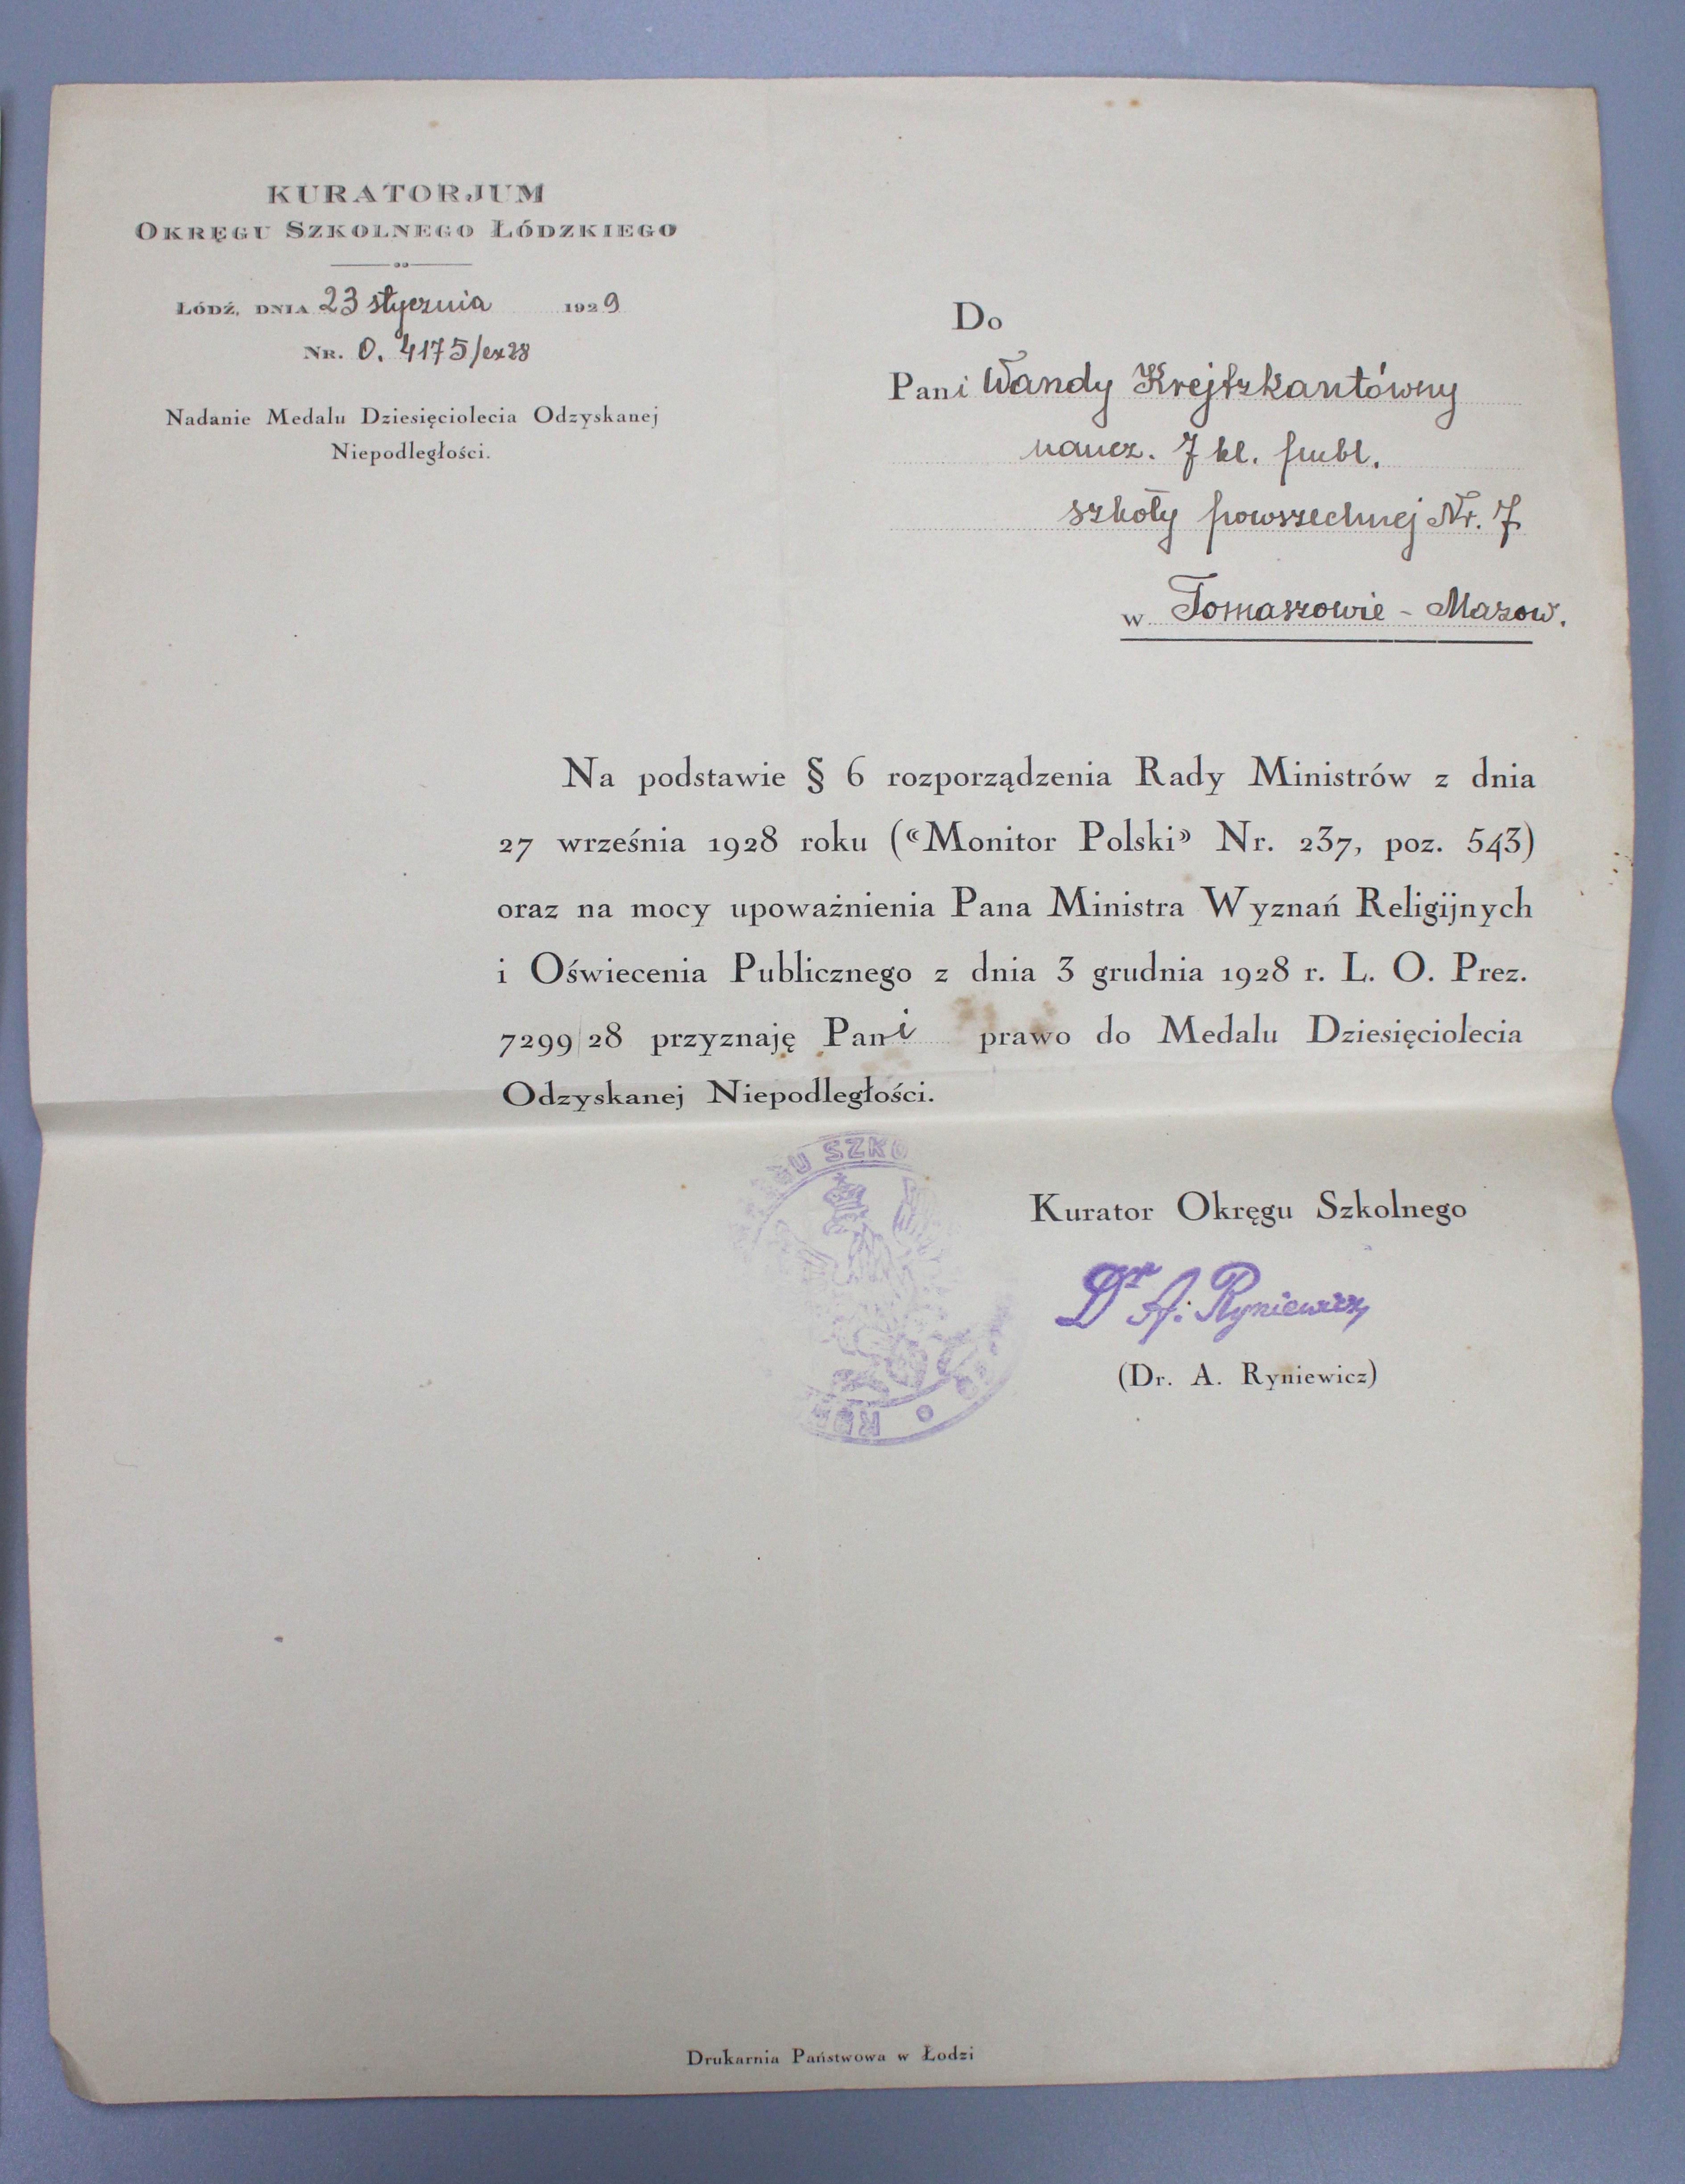 KURATORJUM
OKRĘGU SZKOLNEGO ŁÓDZKIEGO
ŁÓDŹ, DNIA 23 stycznia 1929
NR. O. 4175/ex28
Nadanie Medalu Dziesięciolecia Odzyskanej
Niepodległości.
Do
Pani Wandy Krejtzkantówny
naucz. 7 kl. publ.
szkoły powszechnej Nr. 7
w Tomaszowie - Mazow.
Na podstawie § 6 rozporządzenia Rady Ministrów z dnia
27 września 1928 roku («Monitor Polski» Nr. 237, poz. 543)
oraz na mocy upoważnienia Pana Ministra Wyznań Religijnych
i Oświecenia Publicznego z dnia 3 grudnia 1928 r. L. O. Prez.
7299/28 przyznaję Pani prawo do Medalu Dziesięciolecia
Odzyskanej Niepodległości.
Kurator Okręgu Szkolnego
Dr A. Ryniewicz
(Dr. A. Ryniewicz)
Drukarnia Państwowa w Łodzi